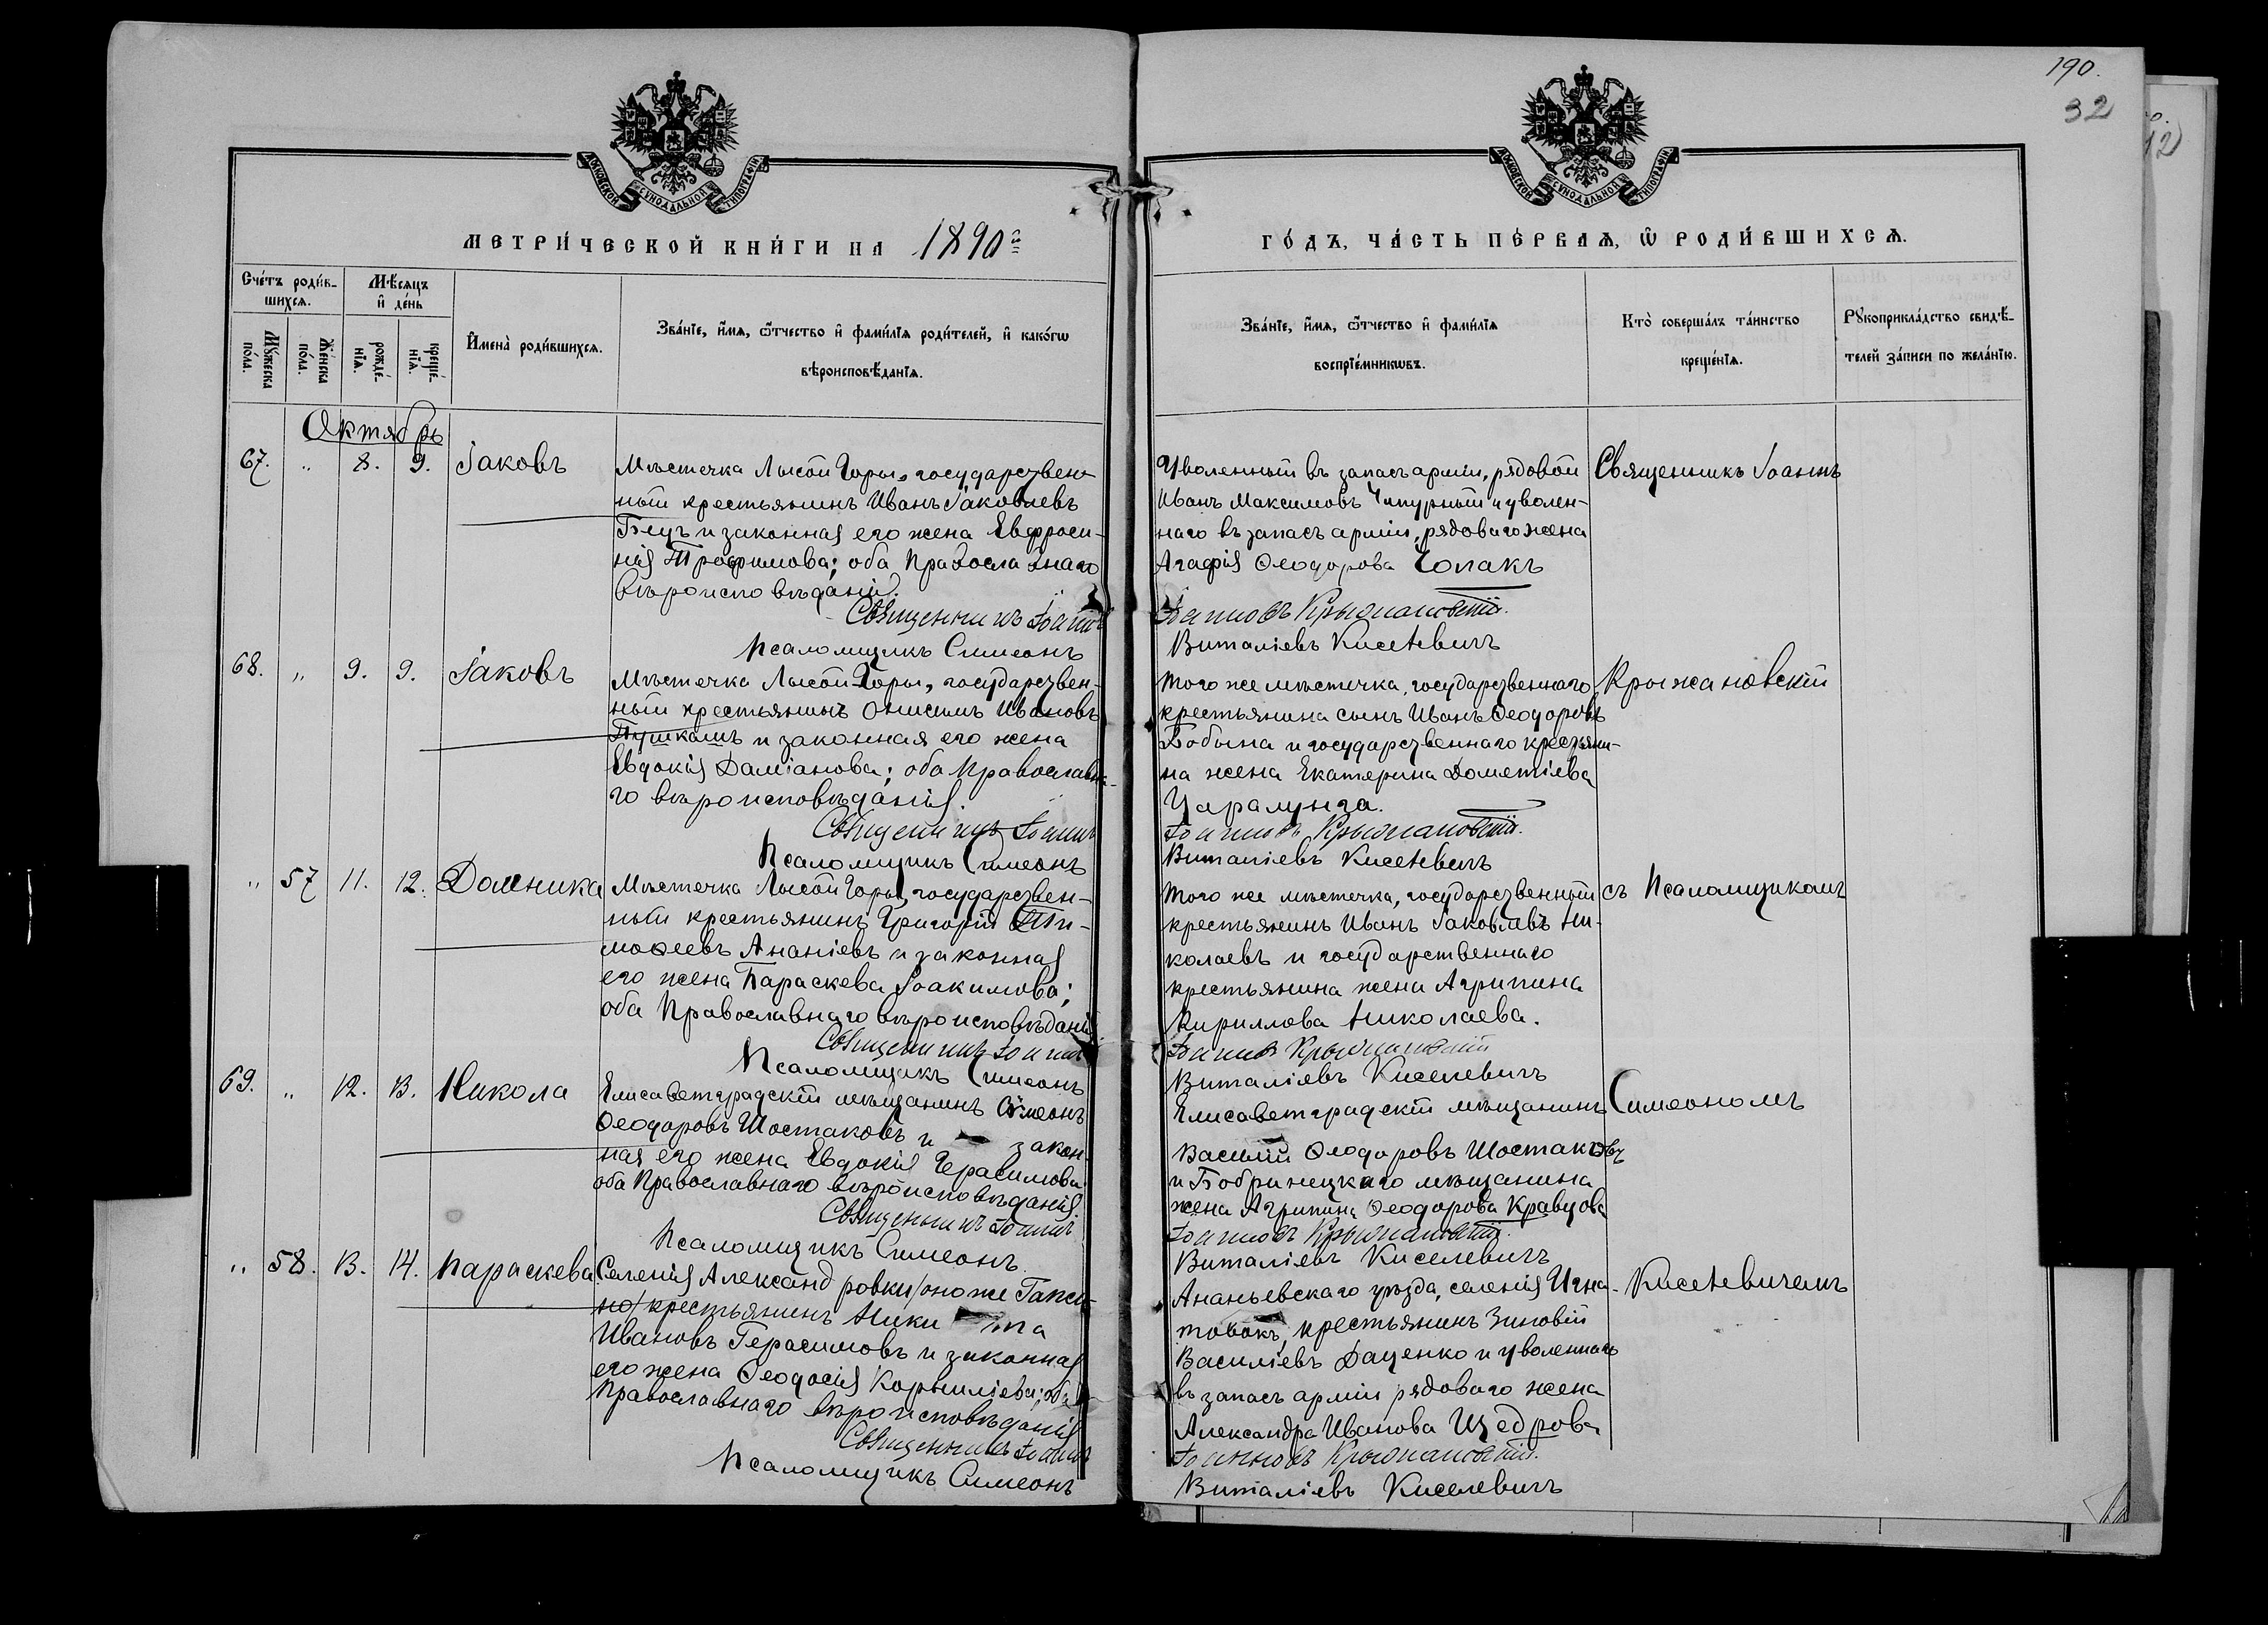 190.
32
МОСКОВСКОЙ СѴНОДАЛЬНОЙ ТИПОГРАФІИ
МОСКОВСКОЙ СѴНОДАЛЬНОЙ ТИПОГРАФІИ
МЕТРИ́ЧЕСКОЙ КНИ́ГИ НА 1890й
ГО́ДЪ, ЧА́СТЬ ПЕ́РВАѦ, Ѡ҆ РОДИ́ВШИХСѦ.
Сче́тъ роди́в-
шихсѧ.
Мѣ́сяцъ
и҆ де́нь
Мꙋ́жеска по́ла.
Же́нска по́ла.
рожде́нїѧ.
креще́нїѧ.
И҆мена̀ роди́вшихсѧ.
Зва́нїе, и҆́мѧ, ѻ҆́тчество и҆ фами́лїѧ роди́телей, и҆ како́гѡ
вѣроисповѣ́данїѧ.
Зва́нїе, и҆́мѧ, ѻ҆́тчество и҆ фами́лїѧ
воспрїе́мникѡвъ.
Кто̀ соверша́лъ та́инство
креще́нїѧ.
Рꙋкоприкла́дство свидѣ́-
телей за́писи по жела́нїю.
Октябрь
67. „ 8. 9. Іаковъ
Мѣстечка Лысой Горы, государствен-
ный крестьянинъ Иванъ Іаковлевъ
и законная его жена Евфроси-
нія Трофимова; оба Православнаго
вѣроисповѣданія.
Священникъ Іоаннъ
Псаломщикъ Симеонъ
Уволенный въ запасъ арміи, рядовой
Иванъ Максимовъ Чипурный и уволен-
наго въ запасъ арміи, рядоваго жена
Агафія Ѳеодорова Чолакъ
Іоанновъ Крыжановскій.
Виталіевъ Киселевичъ
Священникъ Іоаннъ
68. „ 9. 9. Іаковъ
Мѣстечка Лысой-Горы, государствен-
ный крестьянинъ Онисимъ Ивановъ
и законная его жена
Евдокія Даміанова; оба Православна-
го вѣроисповѣданія.
Священникъ Іоаннъ
Псаломщикъ Симеонъ
Того же мѣстечка, государственнаго
крестьянина сынъ Иванъ Ѳеодоровъ
Бобына и государственнаго крестьяни-
на жена Екатерина Дометіева
Царалунга.
Іоанновъ Крыжановскій.
Виталіевъ Киселевичъ
Крыжановскій
„ 57 11. 12. Домника
Мѣстечка Лысой Горы, государствен-
ный крестьянинъ Григорій Ти-
моѳеевъ Ананіевъ и законная
его жена Параскева Іоакимова;
оба Православнаго вѣроисповѣданія
Священникъ Іоаннъ
Псаломщикъ Симеонъ
Того же мѣстечка, государственный
крестьянинъ Иванъ Іаковлевъ Ни-
колаевъ и государственнаго
крестьянина жена Агрипина
Кириллова Николаева.
Іоанновъ Крыжановскій
Виталіевъ Киселевичъ
съ Псаломщикомъ
69. „ 12. 13. Никола
Елисаветградскій мѣщанинъ Симеонъ
Ѳеодоровъ Шостаковъ и закон-
ная его жена Евдокія Герасимова
оба Православнаго вѣроисповѣданія.
Священникъ Іоаннъ
Псаломщикъ Симеонъ
Елисаветградскій мѣщанинъ
Василій Ѳеодоровъ Шостаковъ
и Бобринецкаго мѣщанина
жена Агрипина Ѳеодорова Кравцова
Іоанновъ Крыжановскій.
Виталіевъ Киселевичъ
Симеономъ
„ 58. 13. 14. Параскева
Селенія Александровки/оно же
но/крестьянинъ Никита
Ивановъ Герасимовъ и законная
его жена Ѳеодосія Корниліева; оба
Православнаго вѣроисповѣданія
Священникъ Іоаннъ
Псаломщикъ Симеонъ
Ананьевскаго уѣзда, селенія Игна-
товокъ, крестьянинъ Зиновій
Василіевъ Даценко и уволеннаго
въ запасъ арміи рядоваго жена
Александра Иванова Щедрова
Іоанновъ Крыжановскій.
Виталіевъ Киселевичъ
Киселевичемъ